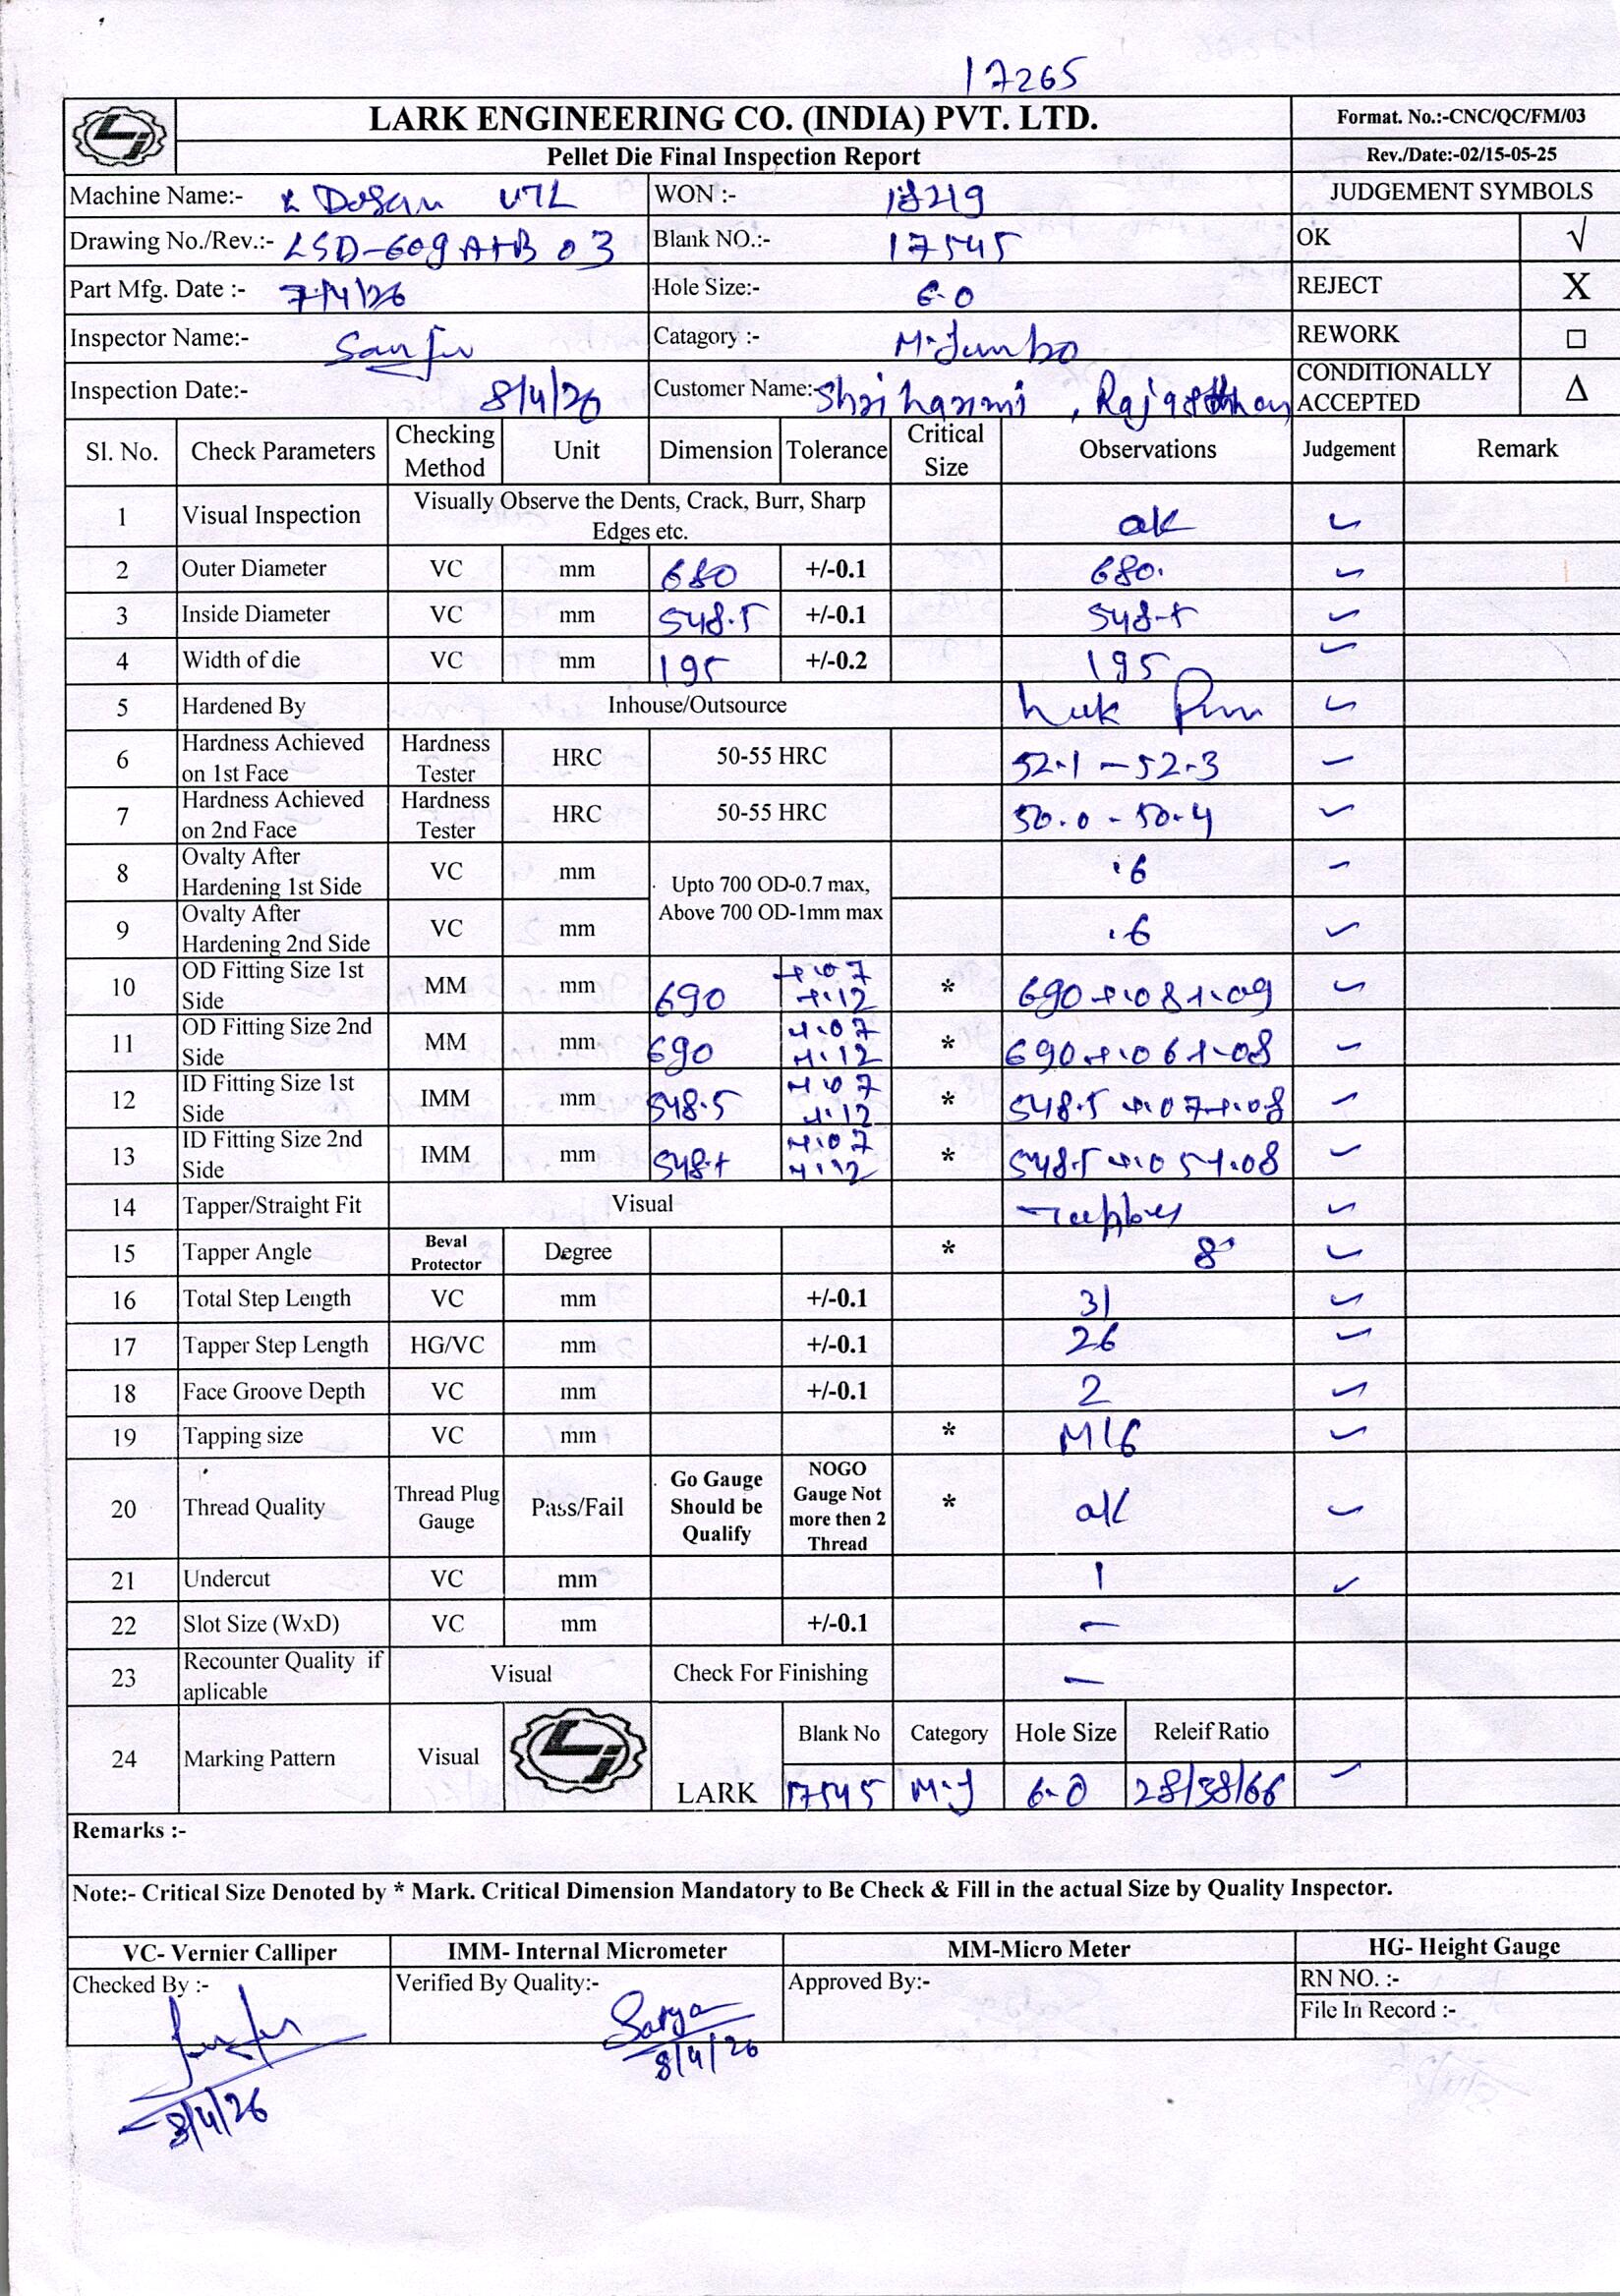 17265
LARK ENGINEERING CO. (INDIA) PVT. LTD.
Format. No.:-CNC/QC/FM/03
Pellet Die Final Inspection Report
Rev./Date:-02/15-05-25
Machine Name:- UTL WON :- 18219 JUDGEMENT SYMBOLS
Drawing No./Rev.:- LSD-609 A+B 03 Blank NO.:- 17545 OK √
Part Mfg. Date :- 7/4/26 Hole Size:- 6.0 REJECT X
Inspector Name:- Catagory :- M.Jumbo REWORK □
Inspection Date:- 8/4/26 Customer Name:- Shri , CONDITIONALLY ACCEPTED Δ
Sl. No. Check Parameters Checking Method Unit Dimension Tolerance Critical Size Observations Judgement Remark
1 Visual Inspection Visually Observe the Dents, Crack, Burr, Sharp Edges etc. ok ✓
2 Outer Diameter VC mm 680 +/-0.1 680. ✓
3 Inside Diameter VC mm 548.5 +/-0.1 548.5 ✓
4 Width of die VC mm 195 +/-0.2 195 ✓
5 Hardened By Inhouse/Outsource ✓
6 Hardness Achieved on 1st Face Hardness Tester HRC 50-55 HRC 52.1 - 52.3 ✓
7 Hardness Achieved on 2nd Face Hardness Tester HRC 50-55 HRC 50.0 - 50.4 ✓
8 Ovalty After Hardening 1st Side VC mm Upto 700 OD-0.7 max, Above 700 OD-1mm max .6 ✓
9 Ovalty After Hardening 2nd Side VC mm .6 ✓
10 OD Fitting Size 1st Side MM mm 690 +.07 +.12 * 690 +.08 +.09 ✓
11 OD Fitting Size 2nd Side MM mm 690 +.07 +.12 * 690 +.06 +.08 ✓
12 ID Fitting Size 1st Side IMM mm 548.5 +.07 +.12 * 548.5 +.07 +.08 ✓
13 ID Fitting Size 2nd Side IMM mm 548.5 +.07 +.12 * 548.5 +.05 +.08 ✓
14 Tapper/Straight Fit Visual Tapper ✓
15 Tapper Angle Beval Protector Degree * 8° ✓
16 Total Step Length VC mm +/-0.1 31 ✓
17 Tapper Step Length HG/VC mm +/-0.1 26 ✓
18 Face Groove Depth VC mm +/-0.1 2 ✓
19 Tapping size VC mm * M16 ✓
20 Thread Quality Thread Plug Gauge Pass/Fail Go Gauge Should be Qualify NOGO Gauge Not more then 2 Thread * ok ✓
21 Undercut VC mm 1 ✓
22 Slot Size (WxD) VC mm +/-0.1 —
23 Recounter Quality if aplicable Visual Check For Finishing —
24 Marking Pattern Visual LARK Blank No Category Hole Size Releif Ratio
17545 M.J 6.0 28/38/66 ✓
Remarks :-
Note:- Critical Size Denoted by * Mark. Critical Dimension Mandatory to Be Check & Fill in the actual Size by Quality Inspector.
VC- Vernier Calliper IMM- Internal Micrometer MM-Micro Meter HG- Height Gauge
Checked By :- Verified By Quality:- Approved By:- RN NO. :-
File In Record :-
8/4/26
8/4/26